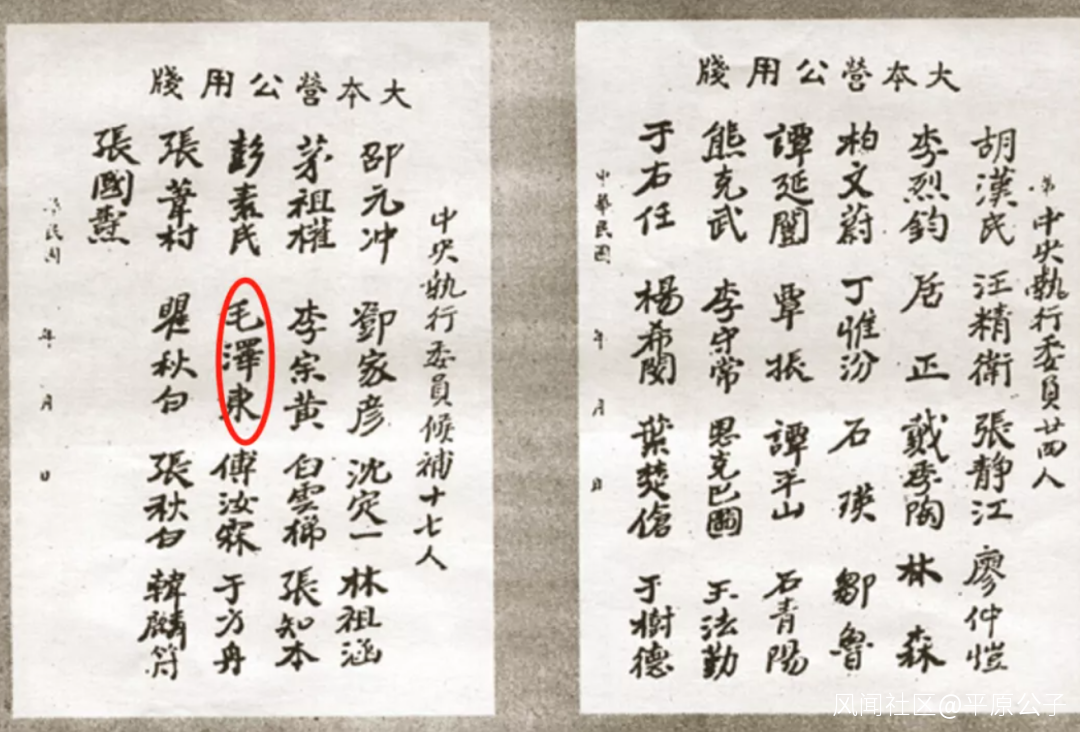 大本營公用牋
第中央執行委員廿四人
胡漢民 汪精衛 張靜江 廖仲愷
李烈鈞 居正 戴季陶 林森
柏文蔚 丁惟汾 石瑛 鄒魯
譚延闓 覃振 譚平山 石青陽
熊克武 李守常 恩克巴圖 王法勤
于右任 楊希閔 葉楚傖 于樹德
中華民國 年 月 日
大本營公用牋
中央執行委員候補十七人
邵元冲 鄧家彦 沈定一 林祖涵
茅祖權 李宗黃 白雲梯 張知本
彭素民 毛澤東 傅汝霖 于方舟
張葦村 瞿秋白 張秋白 韓麟符
張國燾
民國 年 月 日
风闻社区@平原公子